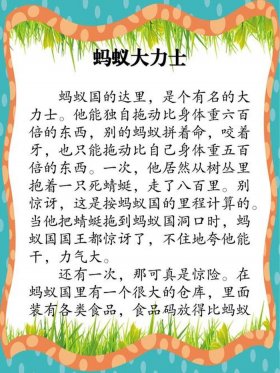 蚂蚁大力士
蚂蚁国的达里，是个有名的大
力士。他能独自拖动比身体重六百
倍的东西，别的蚂蚁拼着命，咬着
牙，也只能拖动比自己身体重五百
倍的东西。一次，他居然从树丛里
抱着一只死蜻蜓，走了八百里。别
惊讶，这是按蚂蚁国的里程计算的。
当他把蜻蜓拖到蚂蚁国洞口时，蚂
蚁国国王都惊讶了，不住地夸他能
干，力气大。
还有一次，那可真是惊险。在
蚂蚁国里有一个很大的仓库，里面
装有各类食品，食品码放得比蚂蚁